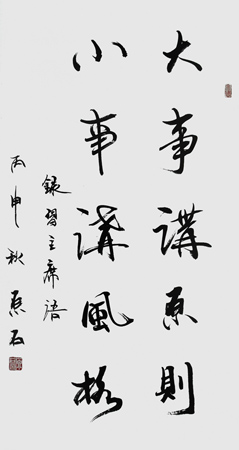 大事講原則
小事講風格
錄習主席語
丙申秋